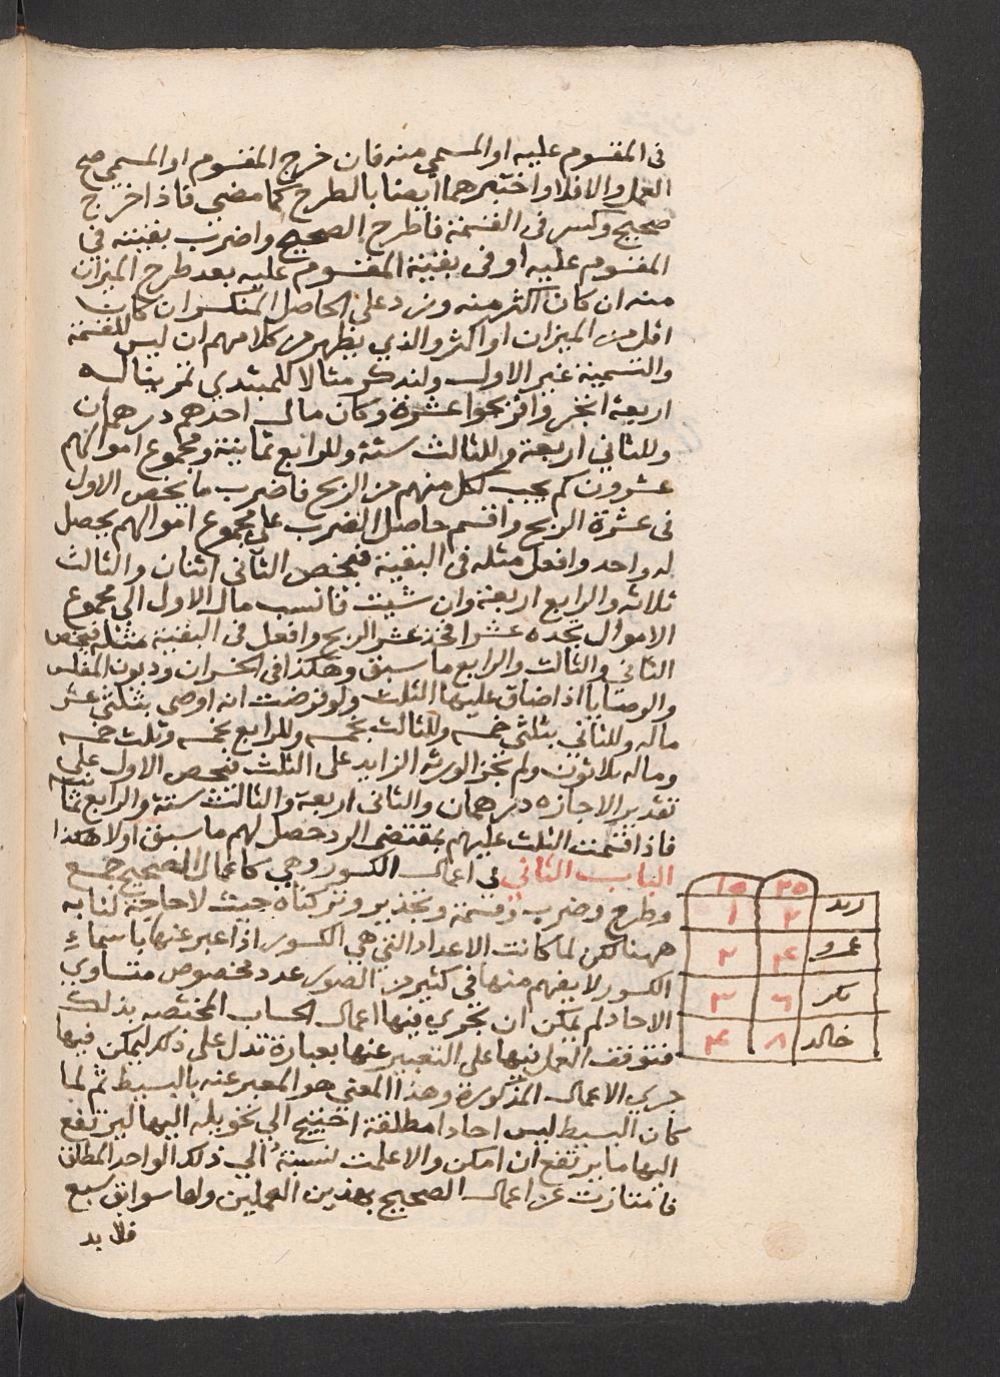 فى المقسوم عليه او المسمى منه فان خرج المقسوم او المسمى صح
العمل والا فلا واختبرهما ايضا بالطرح كما مضى فاذا خرج
صحيح وكسر فى القسمة فاطرح الصحيح واضرب بقيته فى
المقسوم عليه او فى بقية المقسوم عليه بعد طرح الميزان
منه ان كان اكثر منه وزد على الحاصل المنكسر ان كان
اقل من الميزان او اكثر والذي يظهر من كلامهم ان ليس للقسمة
والتسمية غير الاول ولنذكر مثالا للمبتدي تمرينا له
اربعة اتجروا فربحوا عشرة وكان مال احدهم درهمان
وللثاني اربعة وللثالث ستة وللرابع ثمانية ومجموع اموالهم
عشرون كم يجب لكل منهم من الربح فاضرب ما يخص الاول
فى عشرة الربح واقسم حاصل الضرب على مجموع اموالهم يحصل
له واحد وافعل مثله فى البقية فيخص الثاني اثنان والثالث
ثلاثه والرابع اربعة وان شيت فانسب مال الاول الى مجموع
الاموال تجده عشرا فخذ عشر الربح وافعل فى البقية مثله فيخص
الثاني والثالث والرابع ما سبق وهكذا فى الخسران وديون المفلس
والوصايا اذا ضاق عليها الثلث ولو فرضت انه اوصى بثلثي عشر
ماله وللثاني بثلثي خمسه وللثالث بخمسه وللرابع بخمسه وثلث خمسه
وماله ثلاثون ولم تجز الورثه الزايد على الثلث فيخص الاول على
تقدير الاجازه درهمان والثانى اربعة والثالث ستة والرابع ثمانيه
فاذا قسمت الثلث عليهم بمقتضى الرد حصل لهم ما سبق اولا هكذا
الباب الثاني فى اعمال الكسور وهي كاعمال الصحيح جمع
وطرح وضرب وقسمة وتجذير وتركناه حيث لا حاجة لنا به
ههنا لكن لما كانت الاعداد التي هي الكسور اذا عبر عنها باسماء
الكسور لا يفهم منها فى كثير من الصور عدد مخصوص متساوي
الاحاد لم يمكن ان تجري فيها اعمال الحساب المختصه بذلك
فتوقف العمل فيها على التعبير عنها بعبارة تدل على ذلك ليمكن فيها
جري الاعمال المذكورة وهذا المعني هو المعبر عنه بالبسيط ثم لما
كان البسيط ليس احادا مطلقة احتيج الي تحويله اليها ليرتفع
اليها ما يرتفع ان امكن والا علمت نسبته الي ذلك الواحد المطلق
فامتازت عن اعمال الصحيح بهذين العملين ولها سوابق سبع
فلا بد
٢٥ ١٥
زيد ٢ ١
عمرو ٤ ٢
بكر ٦ ٣
خالد ٨ ٤